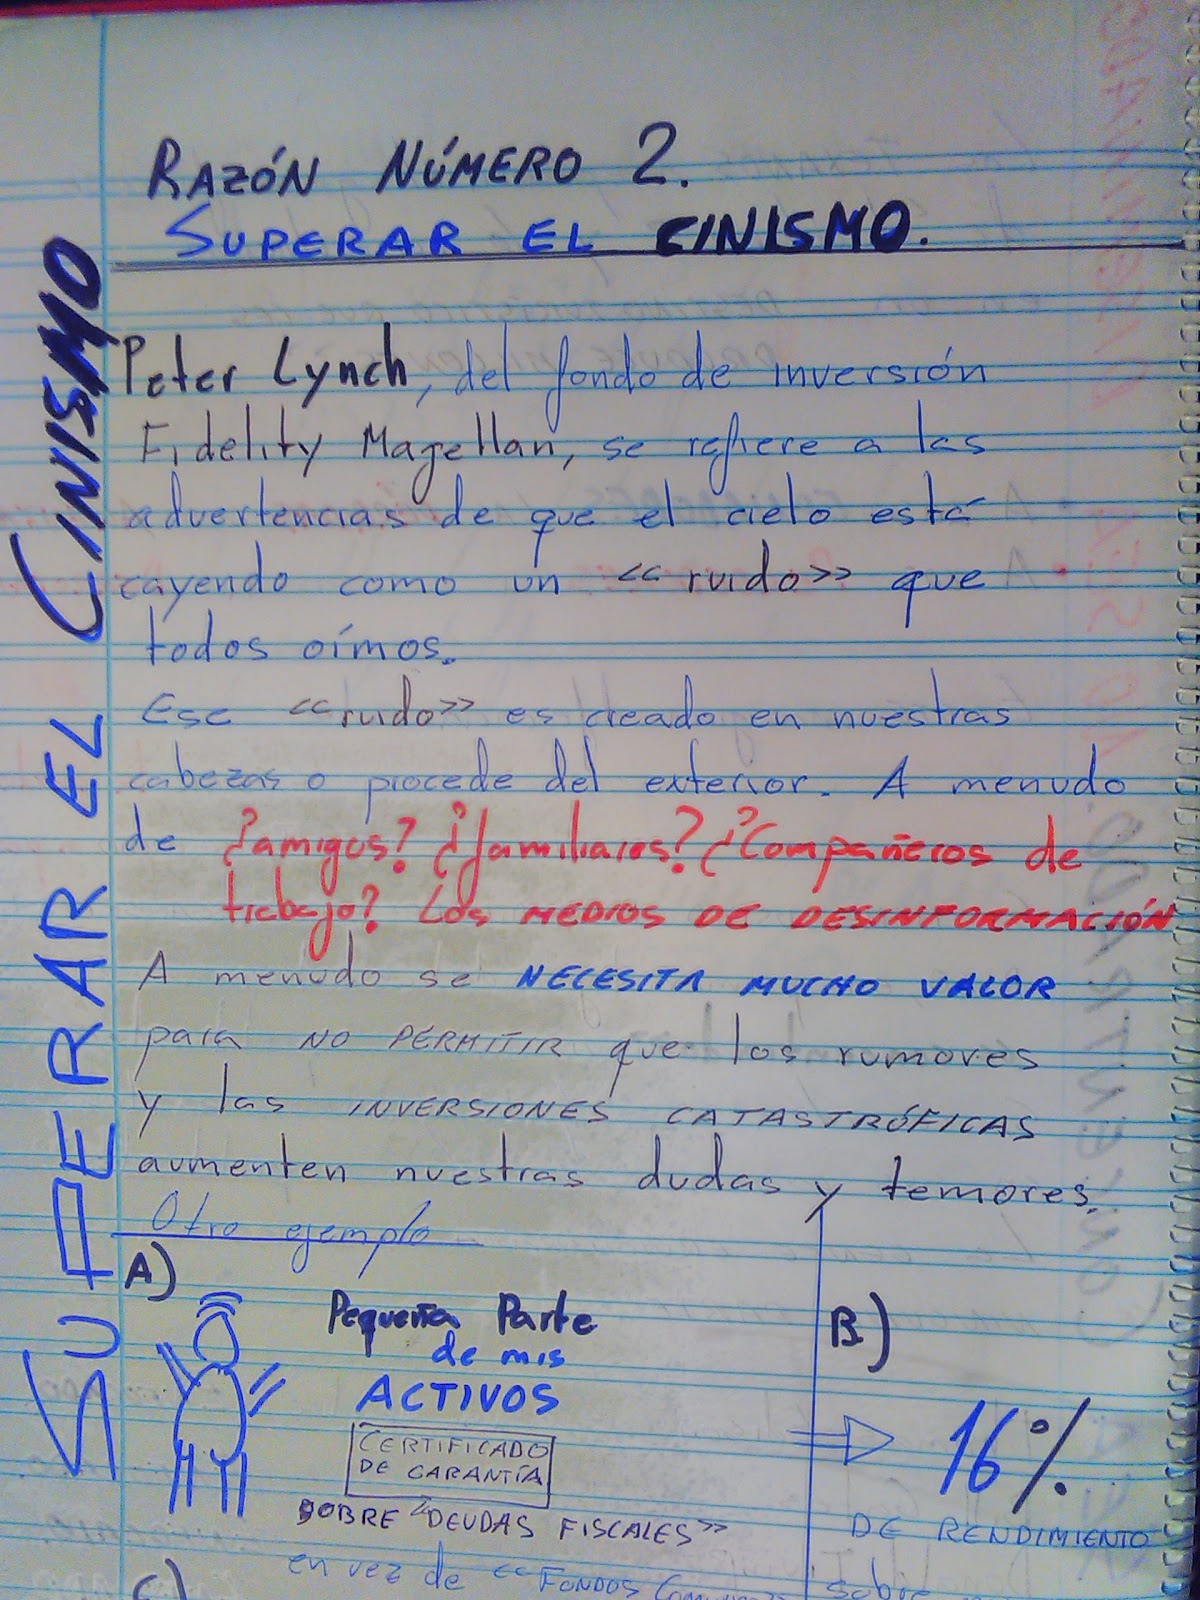 RAZÓN NÚMERO 2.
SUPERAR EL CINISMO.
SUPERAR EL CINISMO
Peter Lynch, del fondo de inversión
Fidelity Magellan, se refiere a las
advertencias de que el cielo está
cayendo como un <<ruido>> que
todos oímos.
Ese <<ruido>> es creado en nuestras
cabezas o procede del exterior. A menudo
de ¿amigos? ¿familiares? ¿Compañeros de
trabajo? LOS MEDIOS DE DESINFORMACIÓN
A menudo se NECESITA MUCHO VALOR
para NO PERMITIR que los rumores
y las INVERSIONES CATASTRÓFICAS
aumenten nuestras dudas y temores.
Otro ejemplo
A)
Pequeña Parte
de mis
ACTIVOS
CERTIFICADO
DE GARANTÍA
SOBRE <<DEUDAS FISCALES>>
en vez de <<FONDOS
B)
16%
DE RENDIMIENTO
sobre
C)